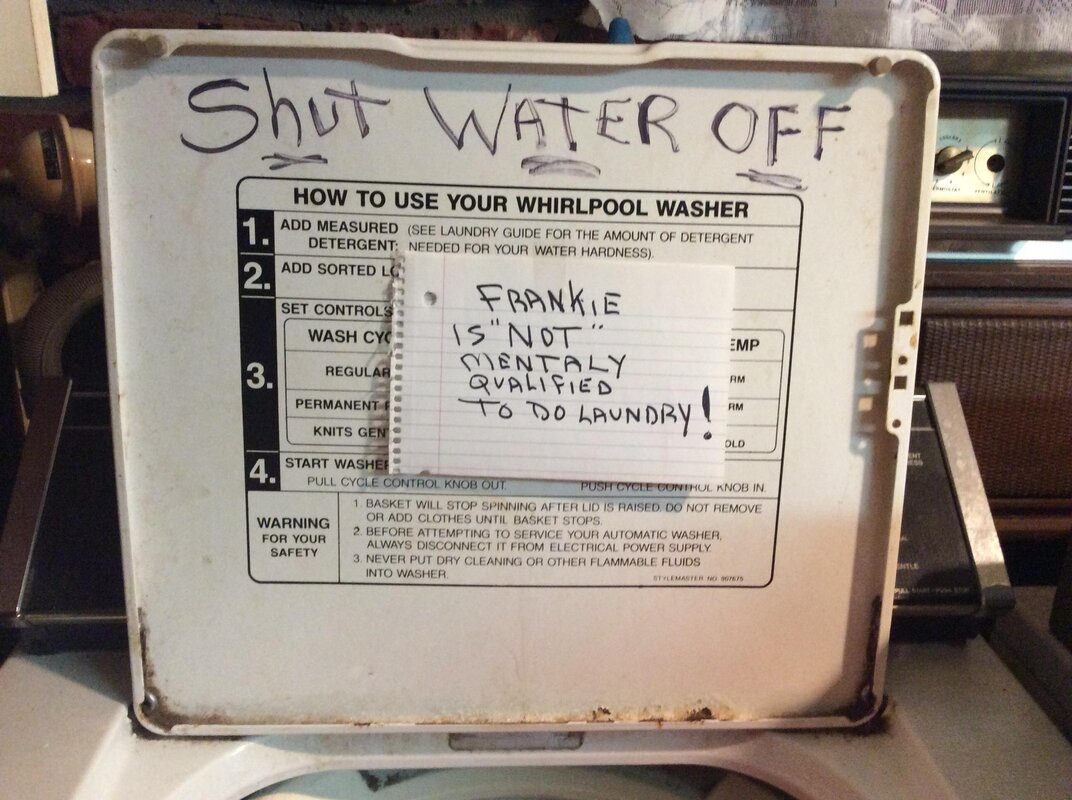 Shut WATER OFF
HOW TO USE YOUR WHIRLPOOL WASHER
1. ADD MEASURED (SEE LAUNDRY GUIDE FOR THE AMOUNT OF DETERGENT
DETERGENT: NEEDED FOR YOUR WATER HARDNESS).
2. ADD SORTED LO
SET CONTROLS
WASH CYC EMP
3. REGULAR RM
PERMANENT P RM
KNITS GEN OLD
4. START WASHER
PULL CYCLE CONTROL KNOB OUT. PUSH CYCLE CONTROL KNOB IN.
FRANKIE
IS "NOT"
MENTALY
QUALIFIED
TO DO LAUNDRY!
WARNING
FOR YOUR
SAFETY
1. BASKET WILL STOP SPINNING AFTER LID IS RAISED. DO NOT REMOVE
OR ADD CLOTHES UNTIL BASKET STOPS.
2. BEFORE ATTEMPTING TO SERVICE YOUR AUTOMATIC WASHER,
ALWAYS DISCONNECT IT FROM ELECTRICAL POWER SUPPLY.
3. NEVER PUT DRY CLEANING OR OTHER FLAMMABLE FLUIDS
INTO WASHER.
STYLEMASTER NO